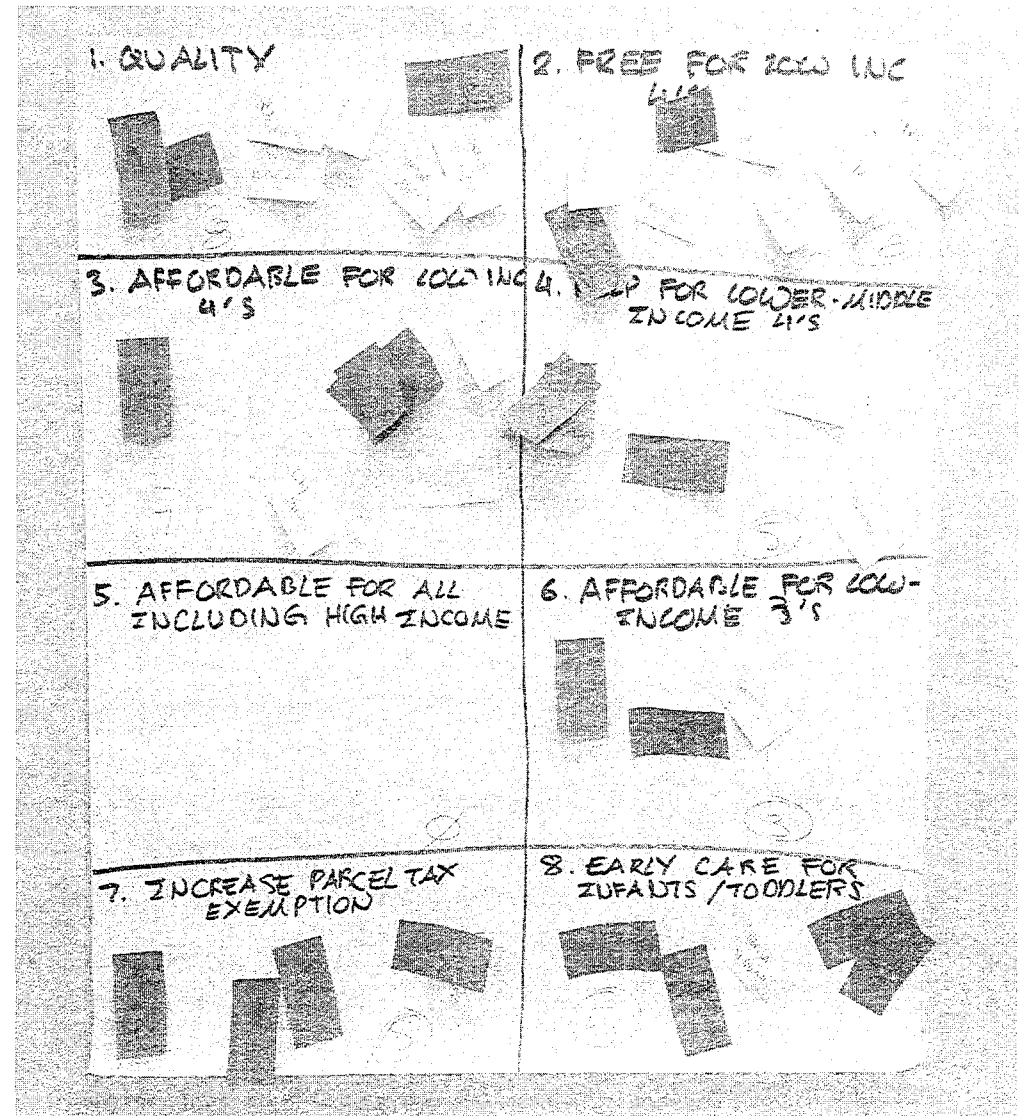 1. QUALITY
8
2. FREE FOR LOW INC
4's
3. AFFORDABLE FOR LOW INC
4's
4. P FOR LOWER-MIDDLE
INCOME 4's
5. AFFORDABLE FOR ALL
INCLUDING HIGH INCOME
0
6. AFFORDABLE FOR LOW-
INCOME 3's
3
7. INCREASE PARCEL TAX
EXEMPTION
8. EARLY CARE FOR
INFANTS / TODDLERS